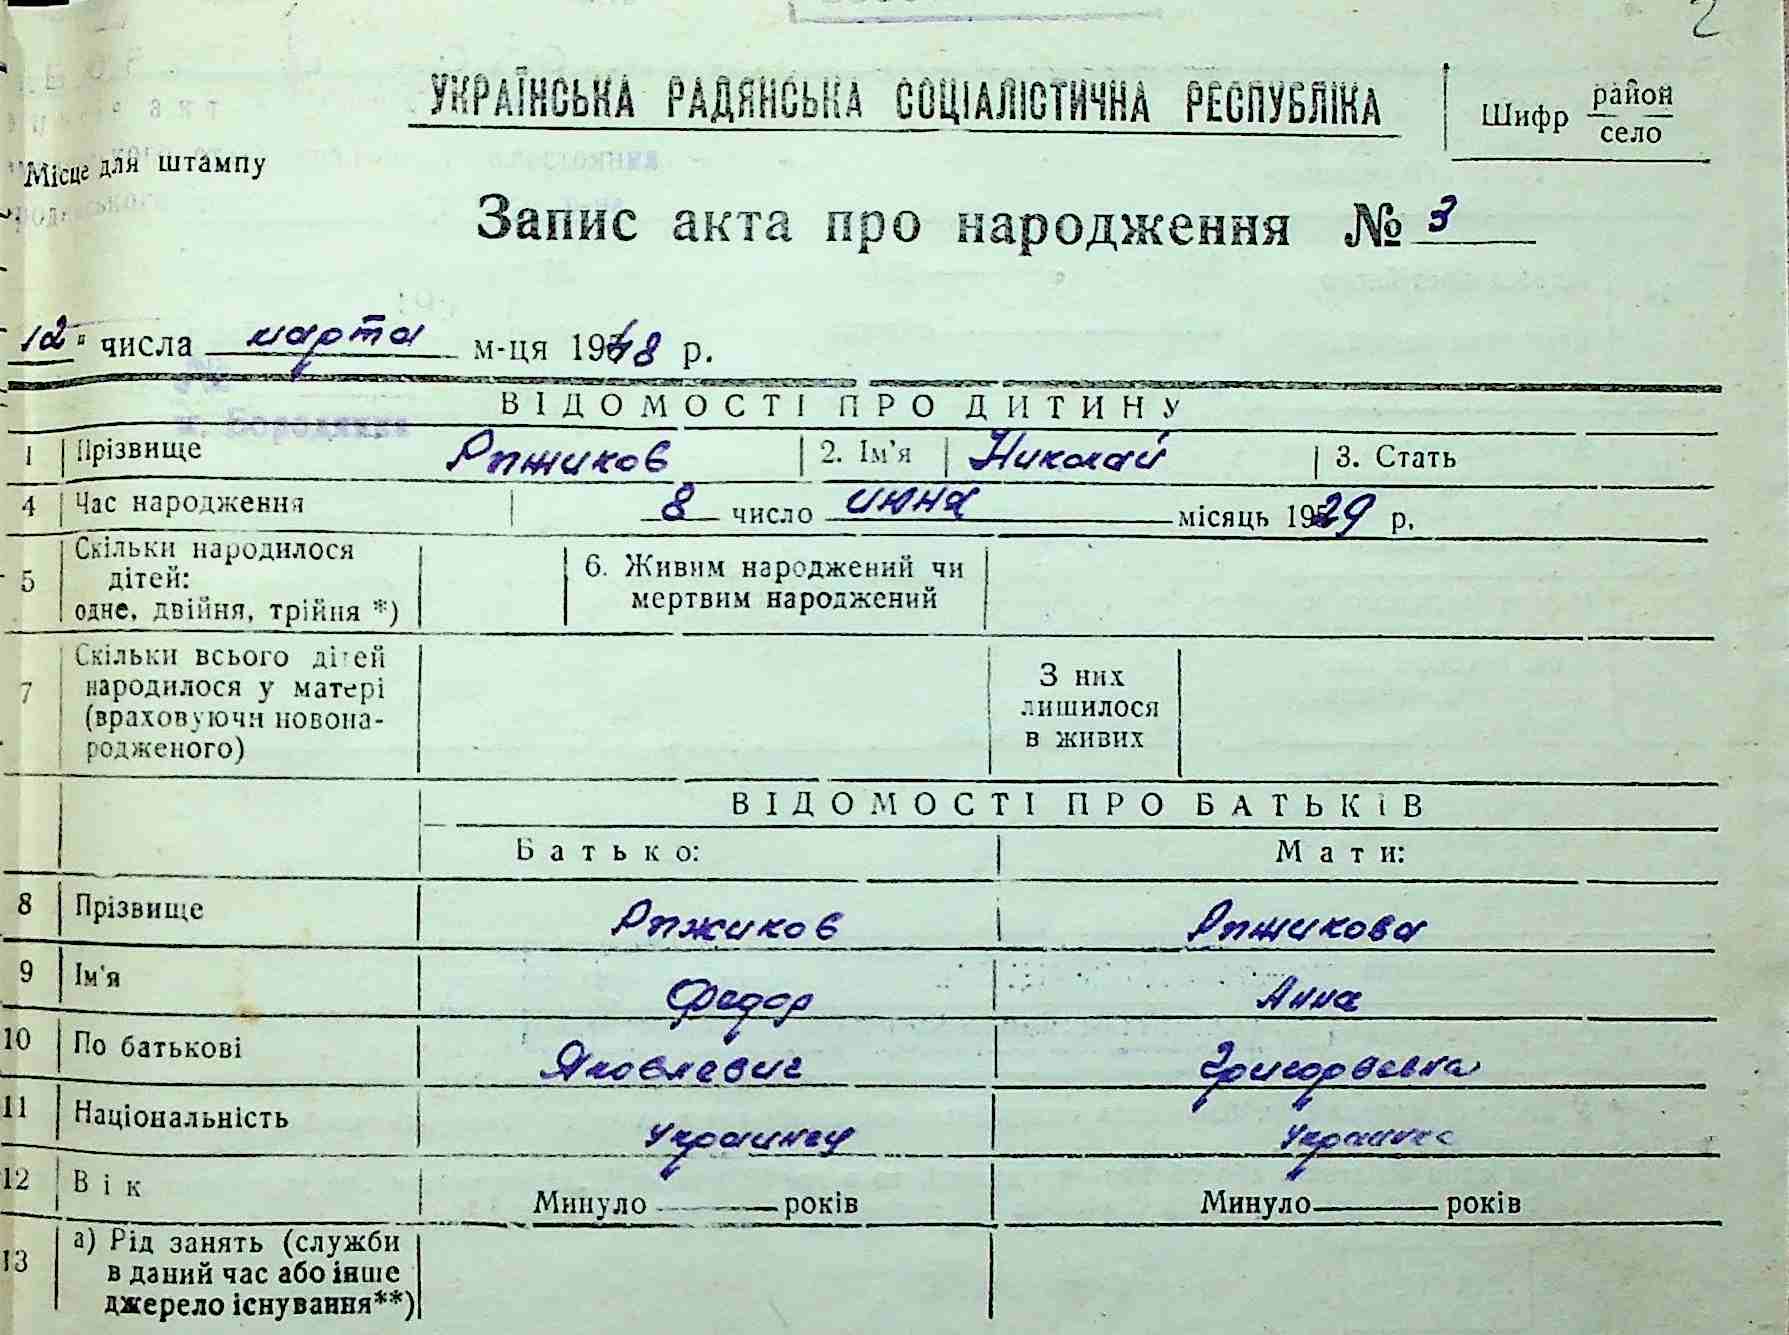 2
УКРАЇНСЬКА РАДЯНСЬКА СОЦІАЛІСТИЧНА РЕСПУБЛІКА
Шифр район
село
Місце для штампу
Запис акта про народження № 3
12 " числа марта м-ця 1948 р.
м. Бородянка
ВІДОМОСТІ ПРО ДИТИНУ
1 Прізвище Рпжиков 2. Ім'я Николай 3. Стать
4 Час народження 8 число июня місяць 1929 р.
5 Скільки народилося дітей: одне, двійня, трійня *) 6. Живим народжений чи мертвим народжений
7 Скільки всього дітей народилося у матері (враховуючи новонародженого) З них лишилося в живих
ВІДОМОСТІ ПРО БАТЬКІВ
Батько: Мати:
8 Прізвище Рпжиков Рпжикова
9 Ім'я Федор Анна
10 По батькові Яковлевич Григорьевна
11 Національність Украинец Украинка
12 Вік Минуло років Минуло років
13 а) Рід занять (служби в даний час або інше джерело існування**)